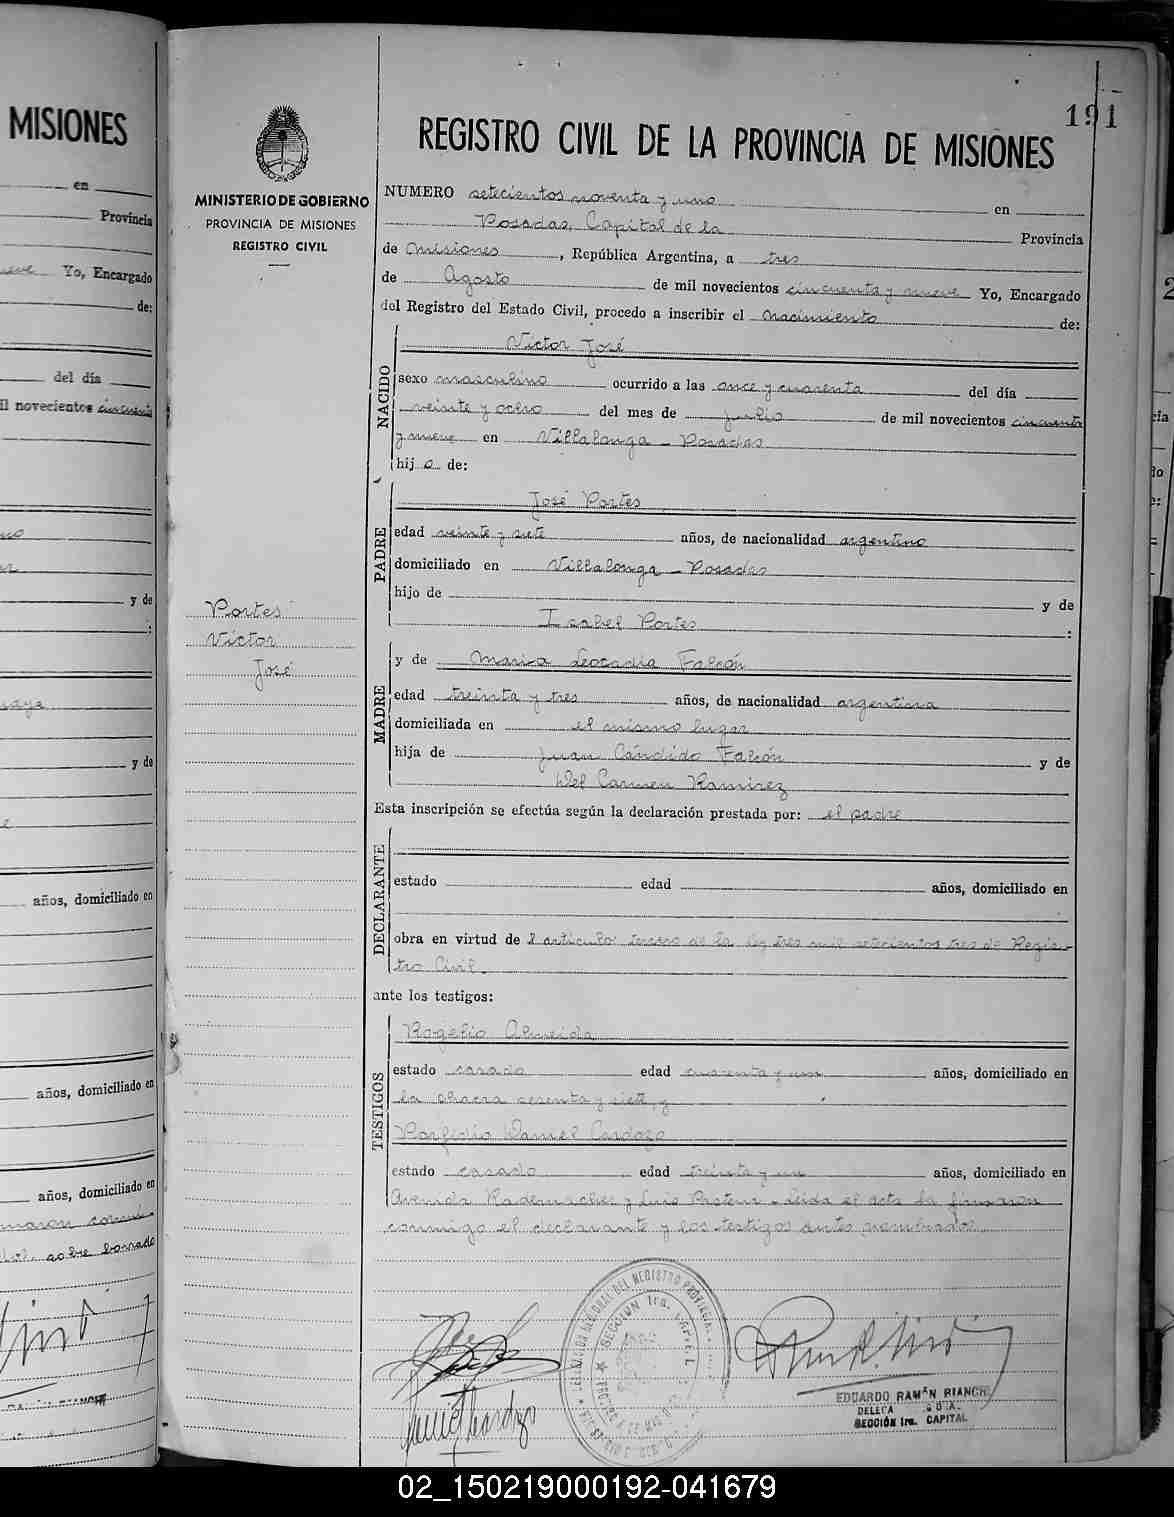 MISIONES
en
Provincia
Yo, Encargado
de:
del día
il novecientos cincuenta
y de
:
y de
años, domiciliado en
años, domiciliado en
años, domiciliado en
sobre borrado
191
MINISTERIO DE GOBIERNO
PROVINCIA DE MISIONES
REGISTRO CIVIL
Portes
Víctor
José
REGISTRO CIVIL DE LA PROVINCIA DE MISIONES
NUMERO setecientos noventa y uno en
Posadas, Capital de la Provincia
de Misiones, República Argentina, a tres
de Agosto de mil novecientos cincuenta y nueve Yo, Encargado
del Registro del Estado Civil, procedo a inscribir el nacimiento de:
NACIDO
Víctor José
sexo masculino ocurrido a las once y cuarenta del día
veinte y ocho del mes de julio de mil novecientos cincuenta
y nueve en Villalonga - Posadas
hij o de:
PADRE
José Portes
edad veinte y siete años, de nacionalidad argentino
domiciliado en Villalonga - Posadas
hijo de y de
Isabel Portes :
MADRE
y de María Leocadia Falcón
edad treinta y tres años, de nacionalidad argentina
domiciliada en el mismo lugar
hija de Juan Cándido Falcón y de
Del Carmen Ramirez
Esta inscripción se efectúa según la declaración prestada por: el padre
DECLARANTE
estado edad años, domiciliado en
obra en virtud de l artículo tercero de la ley tres mil setecientos tres de Regis-
tro Civil.
ante los testigos:
TESTIGOS
Rogelio Almeida
estado casado edad cuarenta y un años, domiciliado en
la chacra sesenta y siete, y
Porfidio Daniel Cardozo
estado casado edad treinta y un años, domiciliado en
Avenida Rademacher y Luis Pasteur - Leida el acta la firmaron
conmigo el declarante y los testigos antes nombrados.
SECCION 1ra. CAPITAL
EDUARDO RAMÓN BIANCHI
SECCIÓN 1ra. CAPITAL
02_150219000192-041679